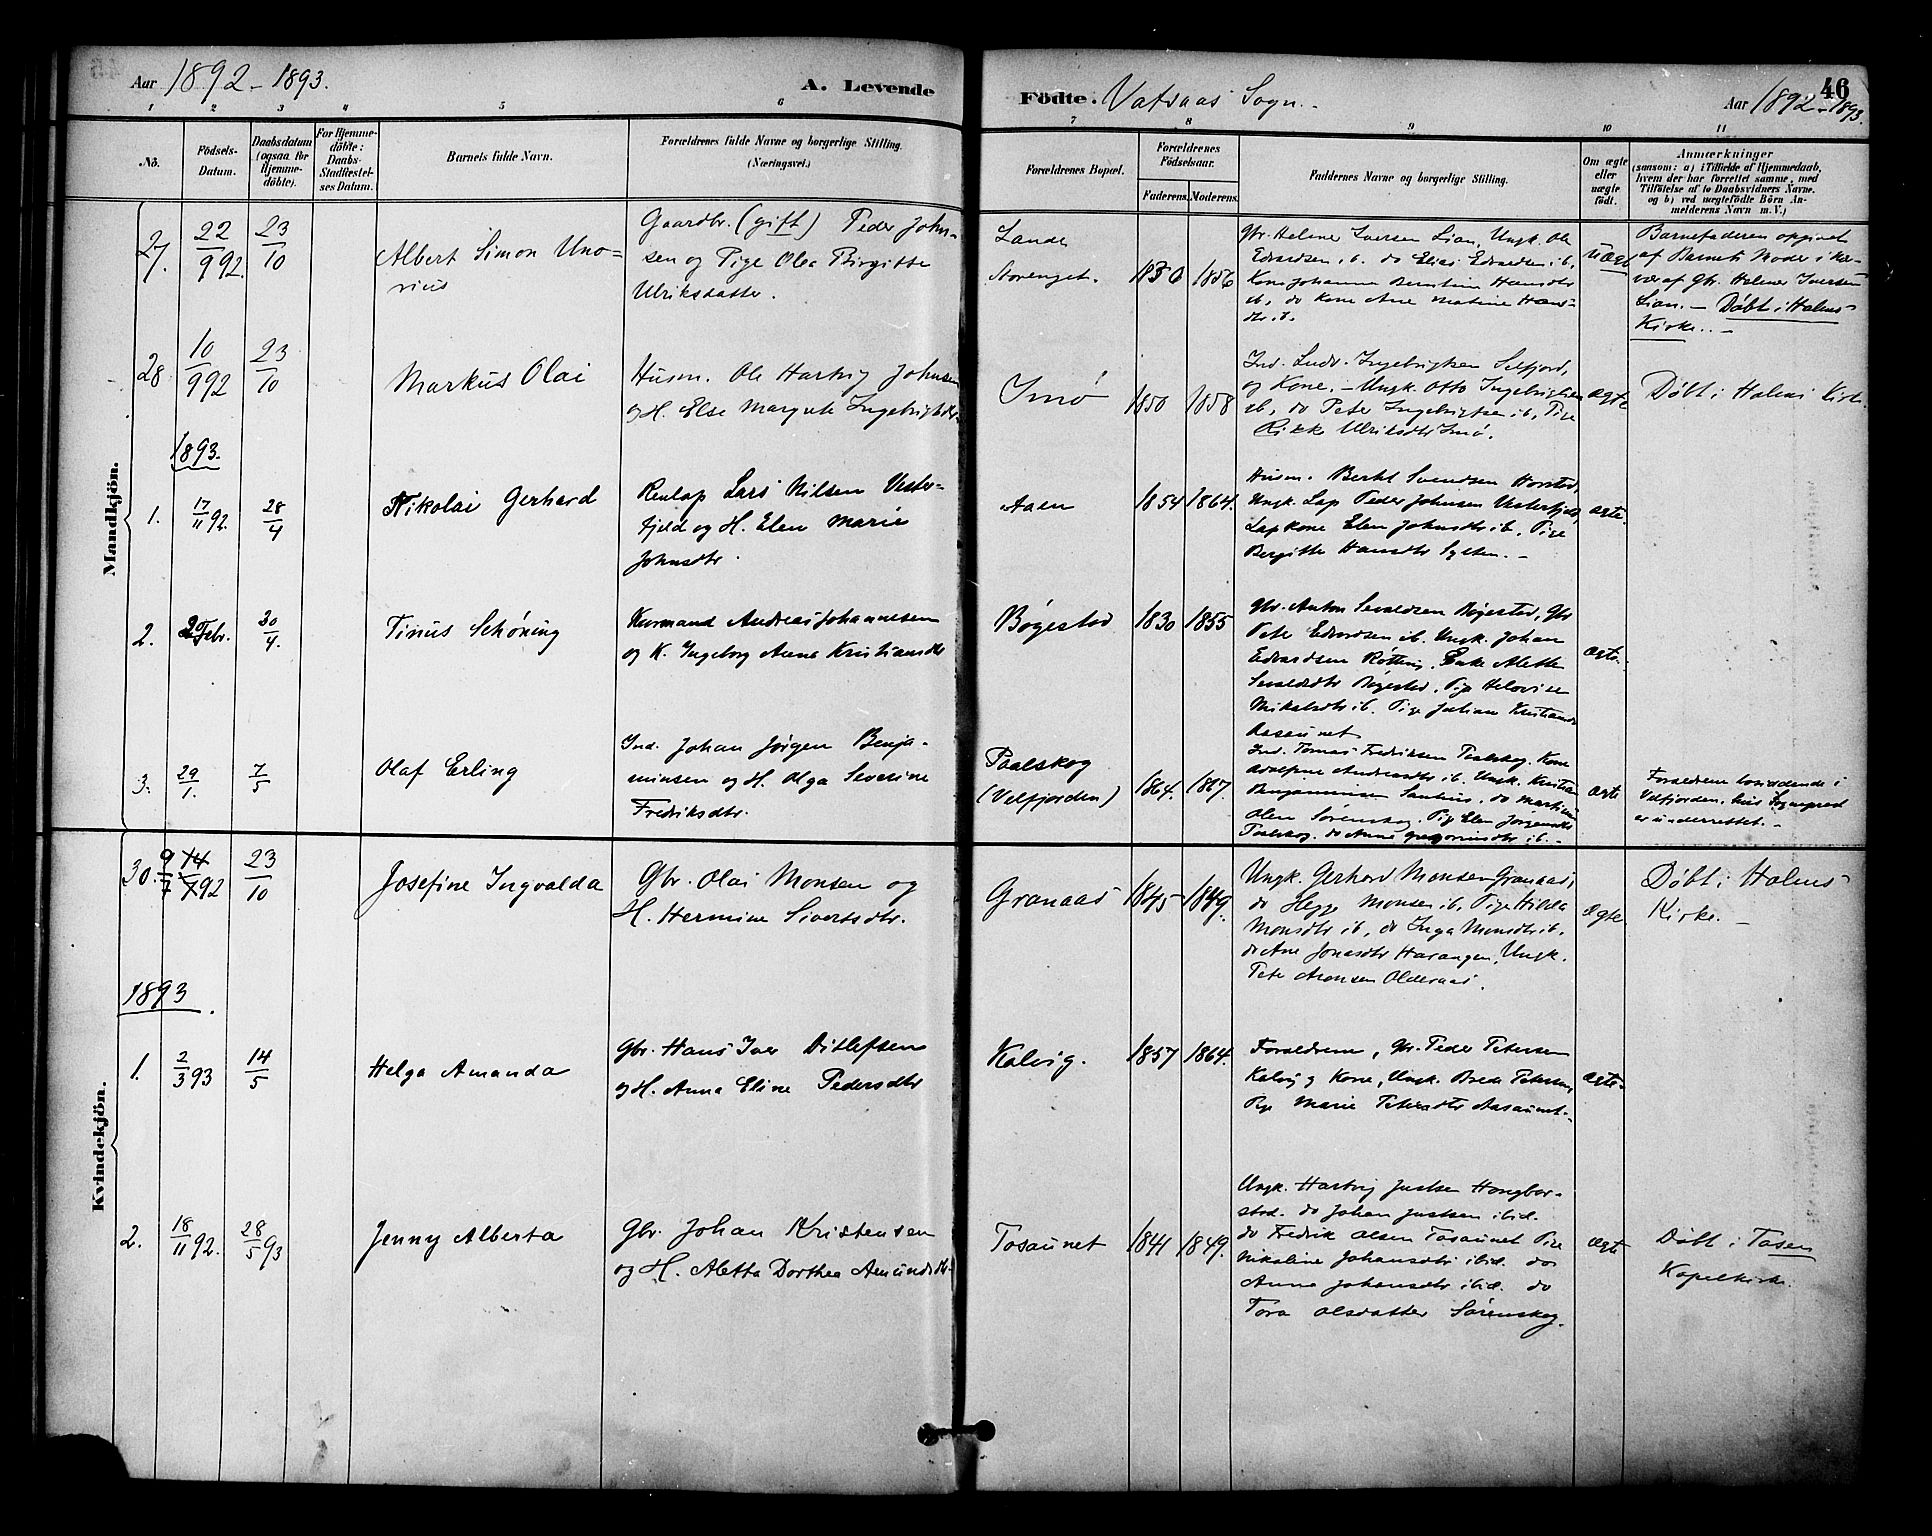 Aar 1892-1893.
A. Levende
Födte. Vatsaas Sogn.
46
Aar 1892-1893.
1 2 3 4 5 6
7 8 9 10 11
No.
Födsels-Datum.
Daabsdatum (ogsaa for Hjemmedöbte).
For Hjemmedöbte: Daabs-Stadfæstelses Datum.
Barnets fulde Navn.
Forældrenes fulde Navne og borgerlige Stilling. (Næringsvei.)
Forældrenes Bopæl.
Forældrenes Födselsaar.
Faderens. Moderens.
Faddernes Navne og borgerlige Stilling.
Om ægte eller uægte født.
Anmærkninger
(saasom: a) i Tilfælde af Hjemmedaab, hvem der har forrettet samme, med Tilföielse af to Daabsvidners Navne. og b) ved uægtefödte Börn Anmelderens Navn m.V.)
Mandkjön.
27. 22/9 92. 23/10
Albert Simon Unorius
Gaardbr. (gift) Peder Johnsen og Pige Olea Birgitte Ulriksdatter.
Lande
1850 1856
Gbr. Helmer Iversen Lian, Ungk. Ole
Edvardsen, ib. do Elias Edvardsen ib,
Kone Johanna Hansdtr
ib, do Kone Ane Matine Hansdtr. ib.
uægte
Barnefaderen opgivet
af Barnets Moder i Nærvær af Gbr. Helmer Iversen
Lian. - Døbt i Holms
Kirke. -
28. 10/9 92 23/10
Markus Olai
Husm. Ole Hartvig Johnsen
og H. Else Margrete Ingebrigtsdtr.
Imø
1850 1858
Ind. Ludv. Ingebrigtsen Selfjord,
og Kone. - Ungk. Otto Ingebrigtsen
ib, do Peter Ingebrigtsen ib, Pige
Rikke Ulriksdtr Imø.
ægte
Døbt i Holms Kirke
1893.
1. 17/11 92. 28/4
Nikolai Gerhard
Renlap Lars Nilsen Vesterfjeld og H. Elen Marie
Johnsdtr.
Aaen
1854 1864.
Husm. Bertel Svendsen Horsted,
Ungk. Lap Peder Johnsen Vesterfjeld,
Lapkone Elen Johnsdtr ib, Pige
Bergitte Hansdtr Sylten. -
ægte.
2. 2 Febr. 30/4.
Tinus Schöning
Kaarmand Andreas Johannesen
og K. Ingeborg Anna Kristiansdtr
Bøgestad
1830 1855
Gbr. Anton Sevaldsen Bøgestad, Gbr
Peter Edvardsen ib. Ungk. Johan
Edvardsen. Enke Aletta
Sevaldsdtr Bøgestad. Pige Helovise
Mikalsdtr ib. Pige Juliane Kristiansd
Aasaunet
ægte.
3. 29/1. 7/5
Olaf Erling
Ind. Johan Jørgen Benjaminsen og H. Olga Severine
Fredriksdtr.
Paalskog
(Velfjorden)
1864. 1867.
Ind. Tomas Fredriksen Paalskog. Kone
Adolfine Andreasdtr ib. Ungk. Kristian
Benjaminsen, do Martinus
Olsen Sørenskog. Pige Elen Jørgensdtr
Paalskog. do Anna Gregoriusdtr ib. -
ægte
Forældrene boriddende i
Velfjorden, hvis Sogneprest
er underrettet. -
Kvindekjön.
30. 9/7 14/7 92 23/10
Josefine Ingvalda
Gbr. Olai Monsen og
H. Hermine Sivertsdtr.
Granaas
1845 1849.
Ungk. Gerhard Monsen Granaas,
do Hegge Monsen ib, Pige Hilda
Monsdtr ib, do Inga Monsdtr ib.
do Ane Jonasdtr Harangen, Ungk.
Peter Aronsen Olderaas.
ægte
Døbt i Holms
Kirke. -
1893.
1. 2/3 93 14/5
Helga Amanda
Gbr. Hans Iver Ditlefsen
og H. Anna Eline Pedersdtr
Kalvig.
1857 1864.
Forældrene, Gbr. Peder Petersen
Kalvig og Kone, Ungk. Brede Petersen,
Pige Marie Petersdtr Aasaunet. -
ægte.
2. 18/11 92. 28/5 93
Jenny Alberta
Gbr. Johan Kristensen
og H. Aletta Dorthea Amundsdtr.
Tosaunet
1841 1849.
Ungk. Hartvig Justsen Hongbarstad. do Johan Justsen ibid.
do Fredrik Olsen Tosaunet Pige
Nikoline Johansdtr ibid. do
Anna Johansdtr ibid. do
Tora Olsdatter Sørenskog.
ægte
Døbt i Tosen
Kapelkirke.